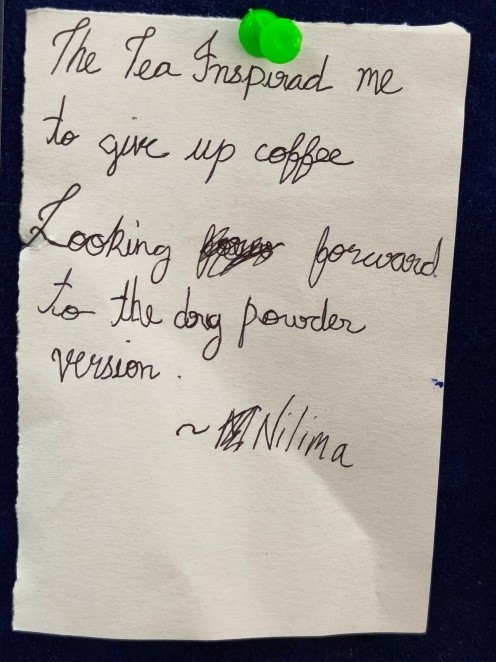 The Tea Inspirad me
to give up coffee
Looking forward
to the dry powder
version.
~ Nilima